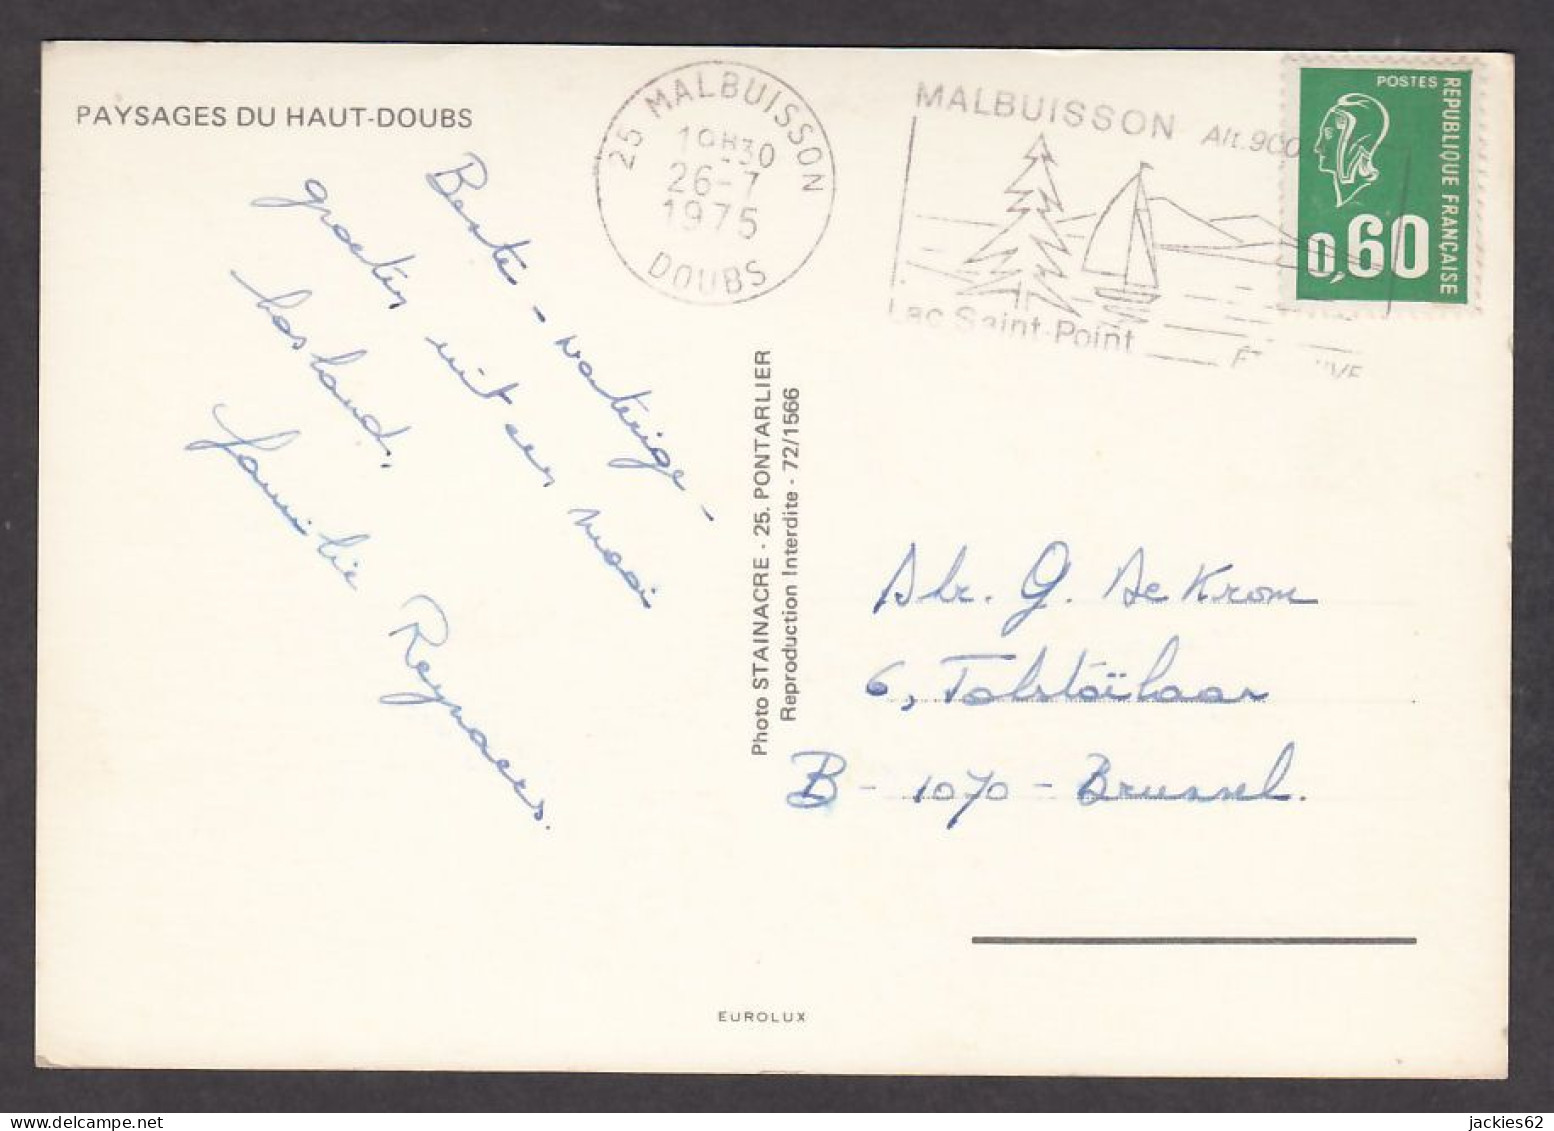 PAYSAGES DU HAUT-DOUBS
25 MALBUISSON
19H30
26-7
1975
DOUBS
MALBUISSON Alt.900
Lac Saint-Point
POSTES
REPUBLIQUE FRANÇAISE
0,60
Beste - Nartige -
groeten uit een mooi
Rusland.
familie Reynaers.
Photo STAINACRE - 25. PONTARLIER
Reproduction Interdite - 72/1566
G. De Krom
6, Tolstoïlaan
B - 1070 - Brussel.
EUROLUX
jackies62